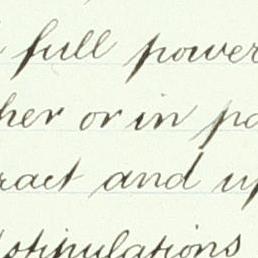 full power
her or in pa
ract and up
stipulations